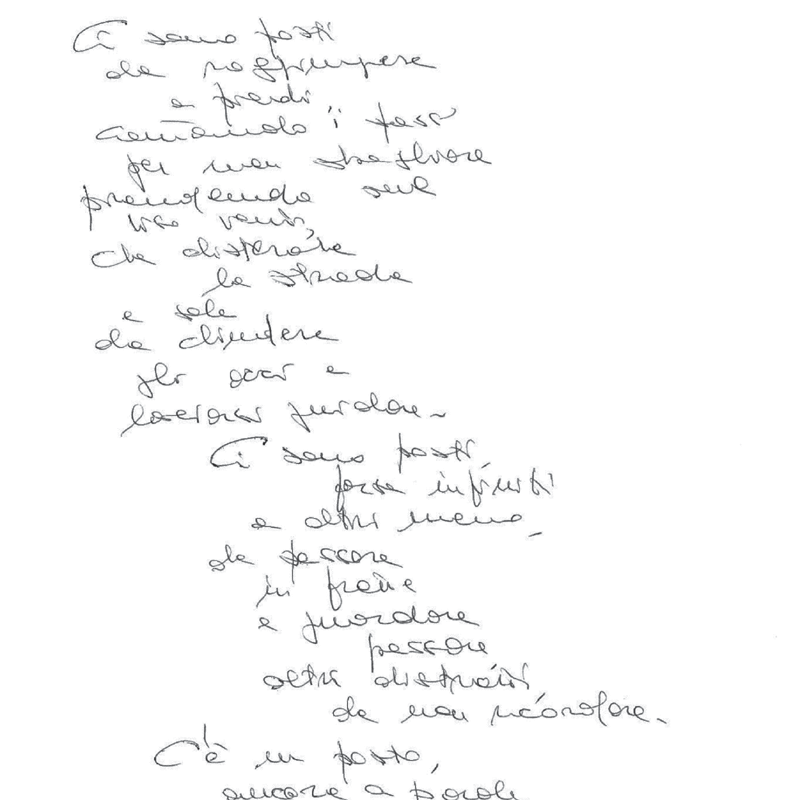 Ci sono posti
da raggiungere
a piedi
contando i passi
per non sbagliare
prendendo
che
la strada
e solo
da chiudere
gli occhi e
lasciarsi guidare.
Ci sono posti,
forse infiniti
e altri meno,
da passare
in fretta
e guardare
passare
altri distratti
da non ricordare.
C'è un posto,
ancora a